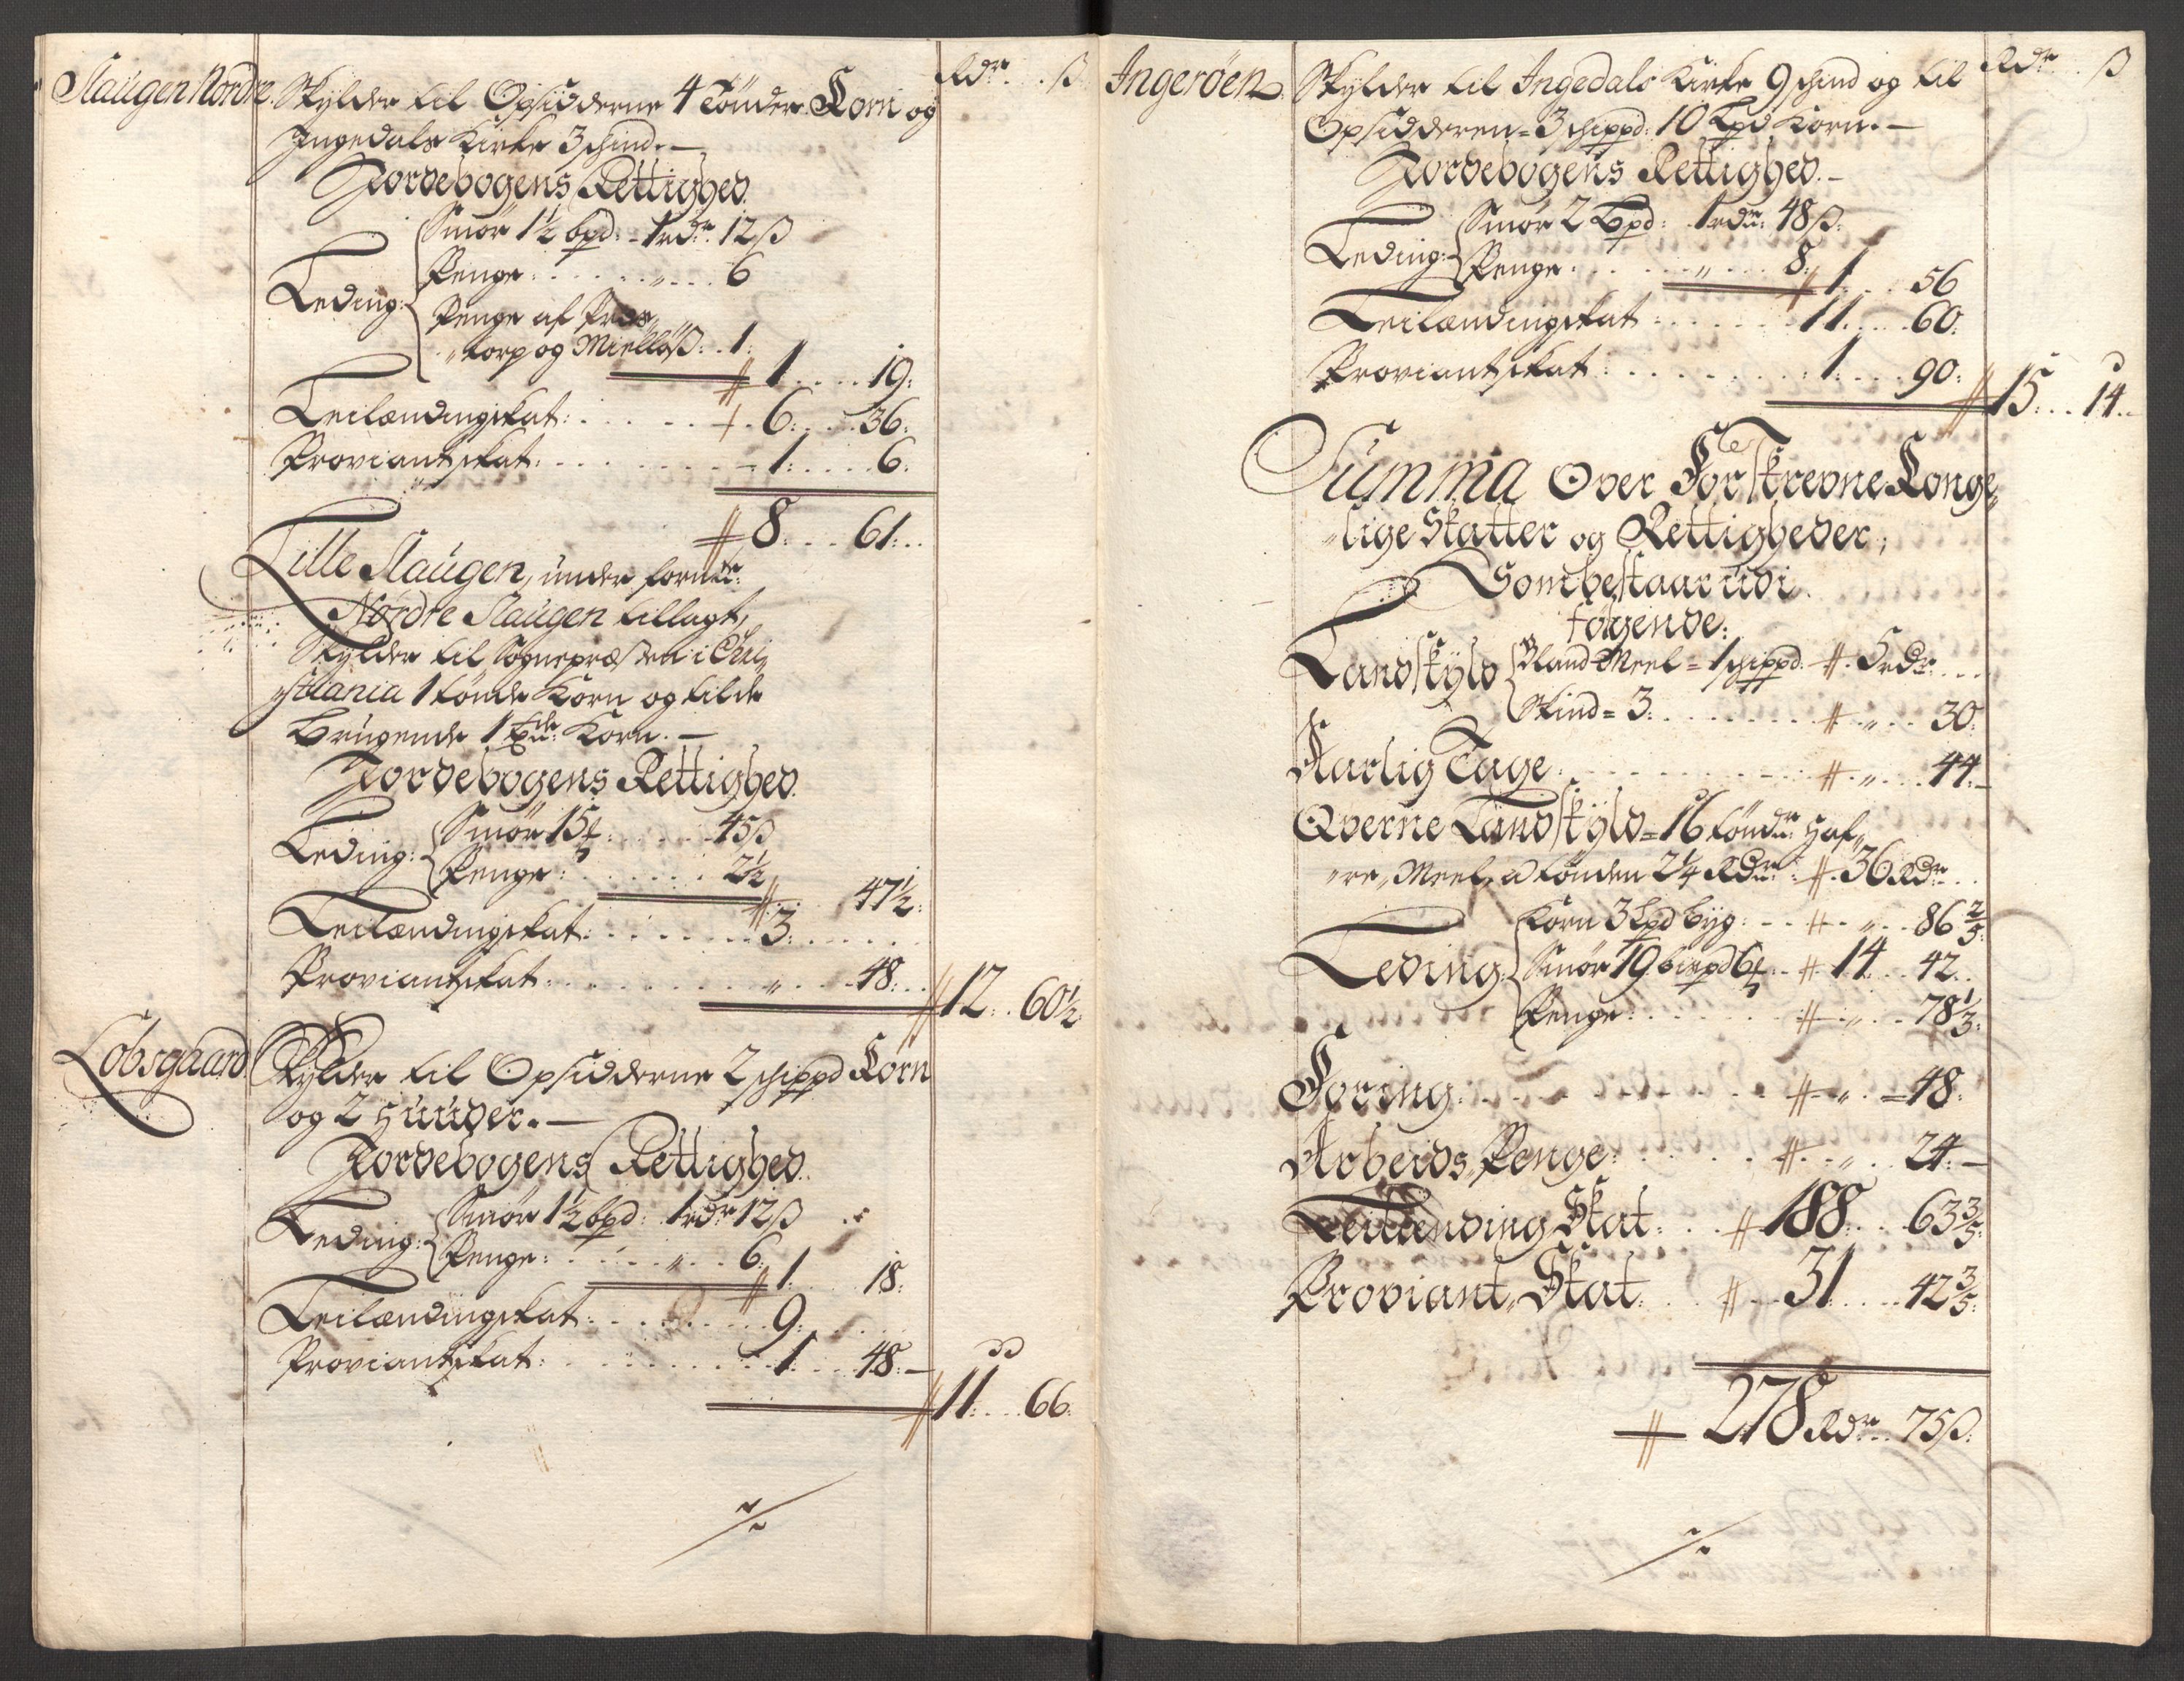 Rdr. ß
Slaugen Nordre. Skylder til Opsidderne 4 Tönder Korn og
Ingedals Kirke 3 skind. —
Jordebogens Rettighed.
Leding: Smör 1½ bpd: - 1 rdr. 12 ß
Penge: . . . . „ . . 6
Penge af Præs„
„torp og Mielløß: . 1:
1 . . . . 19:
Leilændingskat: . . . . . 6: . . . 36:
Proviantskat: . . . . . . 1: . . . . 6:
8: . . . 61: . .
Lille Slaugen, under formte:
Nordre Slaugen tillagt,
Skylder til Sognepræsten i Chri„
„stiania 1 tönde Korn og til de
Brugende 1 Korn. —
Jordebogens Rettighed.
Leding: Smör 15 . . . . . 45 ß
Penge: . . . . . . 2½
47½:
Leilændingskat: . . . . . . . 3: . . . . . .
Proviantskat: . . . . . . . „ . . . 48: . .
12: . . 60½:
Lobsgaard Skylder til Opsidderne 2 schippd Korn
og 2 Huuder. —
Jordebogens Rettighed.
Leding: Smör 1½ bpd: 1 rdr 12 ß
Penge: . . . . . „ . . 6:
1: . . . 18:
Leilændingskat: . . . . . . . 9: . . . .
Proviantskat: . . . . . . . . 1: . . . 48: —
11: . . . 66:
Rdr. ß
Ingeröen. Skylder til Ingedals Kirke 9 schind og til
Opsidderen = 3 schippd: 10 Lpd Korn. —
Jordebogens Rettighed. —
Leding: Smör 2 Bpd: 1 rdr: 48 ß:
Penge . . . . . „ . . . 8:
1 . . . 56
Leilændingskat . . . . . . 11. . . . 60:
Proviantskat: . . . . . . . 1: . . . 90:
15: . . 14. .
Summa Over Forskrevne Konge„
„lige Skatter og Rettigheder,
Som bestaar udi
følgende:
Landskyld Bland Meel = 1 schippd: 5 rdr . . .
Skind = 3: . . . . . . . „ . . . 30:
Aarlig Tage . . . . . . . . „ . . . 44: —
Qverne Landskyld = 16 tönder Haf„
„re„ Meel, a tönden 2¼ Rdr: 36 Rdr . .
Leding: Korn 3 Lpd byg: . . „ . . 86 2/5:
Smör 19 bispd 6 . . 14 . . 42. .
Penge: . . . . . . . „ . . . 78 1/3:
Foring: . . . . . . . . . „ . = 48:
Arbeids Penge: . . . . . „ . . 24: —
Leilænding Skat: . . 188: . . 63 3/5:
Proviant„ Skat: . . . 31: . . . 42 3/5:
278 Rdr . . 75 ß: